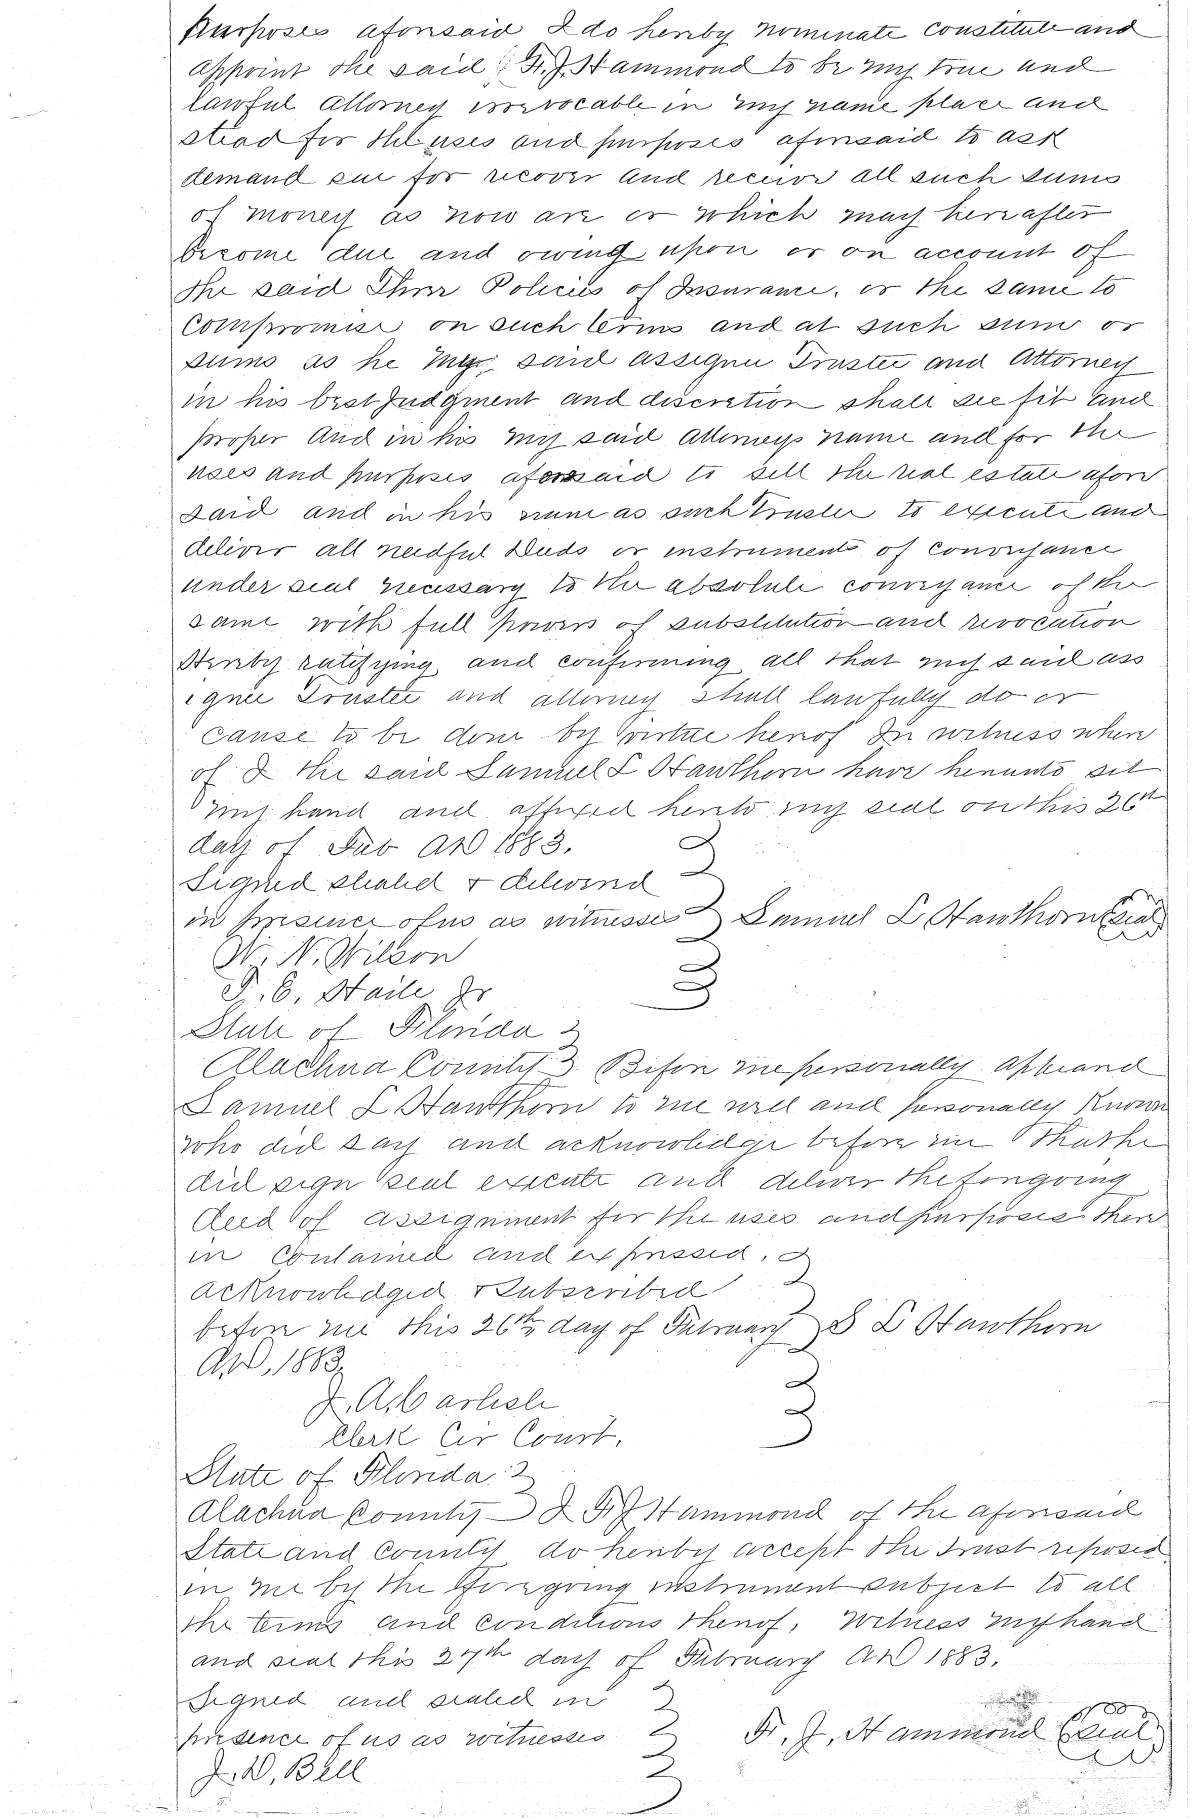 purposes aforesaid I do hereby nominate constitute and
appoint the said F. J. Hammond to be my true and
lawful attorney irrevocable in my name place and
stead for the uses and purposes aforesaid to ask
demand sue for recover and receive all such sums
of money as now are or which may hereafter
become due and owing upon or on account of
the said Three Policies of Insurance, or the same to
compromise on such terms and at such sum or
sums as he my said assignee Trustee and Attorney
in his best Judgment and discretion shall see fit and
proper And in his my said Attorneys name and for the
uses and purposes aforesaid to sell the real estate afore
said and in his name as such Trustee to execute and
deliver all needful Deeds or instruments of conveyance
under seal necessary to the absolute conveyance of the
same with full powers of substitution and revocation
Hereby ratifying and confirming all that my said ass
ignee Trustee and attorney shall lawfully do or
cause to be done by virtue hereof In witness where
of I the said Samuel L Hawthorn have hereunto set
my hand and affixed hereto my seal on this 26th
day of Feb AD 1883.
Signed sealed + delivered
in presence of us as witnesses Samuel L Hawthorn (seal)
W. N. Wilson
T. E. Haile Jr
State of Florida
Alachua County Before me personally appeared
Samuel L Hawthorn to me well and personally Known
who did say and acknowledge before me that he
did sign seal execute and deliver the foregoing
deed of assignment for the uses and purposes there
in contained and expressed.
Acknowledged & Subscribed
before me this 26th day of February S L Hawthorn
A.D. 1883.
J. A. Carlisle
Clerk Cir Court.
State of Florida
Alachua County I F. J Hammond of the aforesaid
State and County do hereby accept the trust reposed
in me by the foregoing instrument subject to all
the terms and conditions thereof, Witness my hand
and seal this 27th day of February AD 1883.
Signed and sealed in
presence of us as witnesses F. J. Hammond (seal)
J. D. Bell